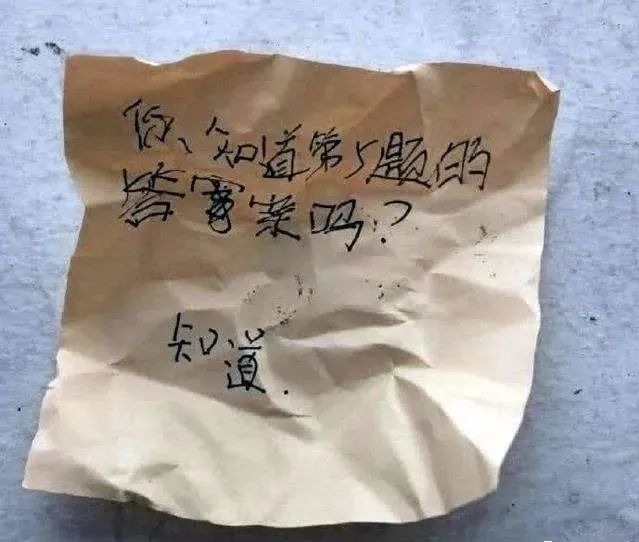 你知道第5题的
答案案吗?
知道.